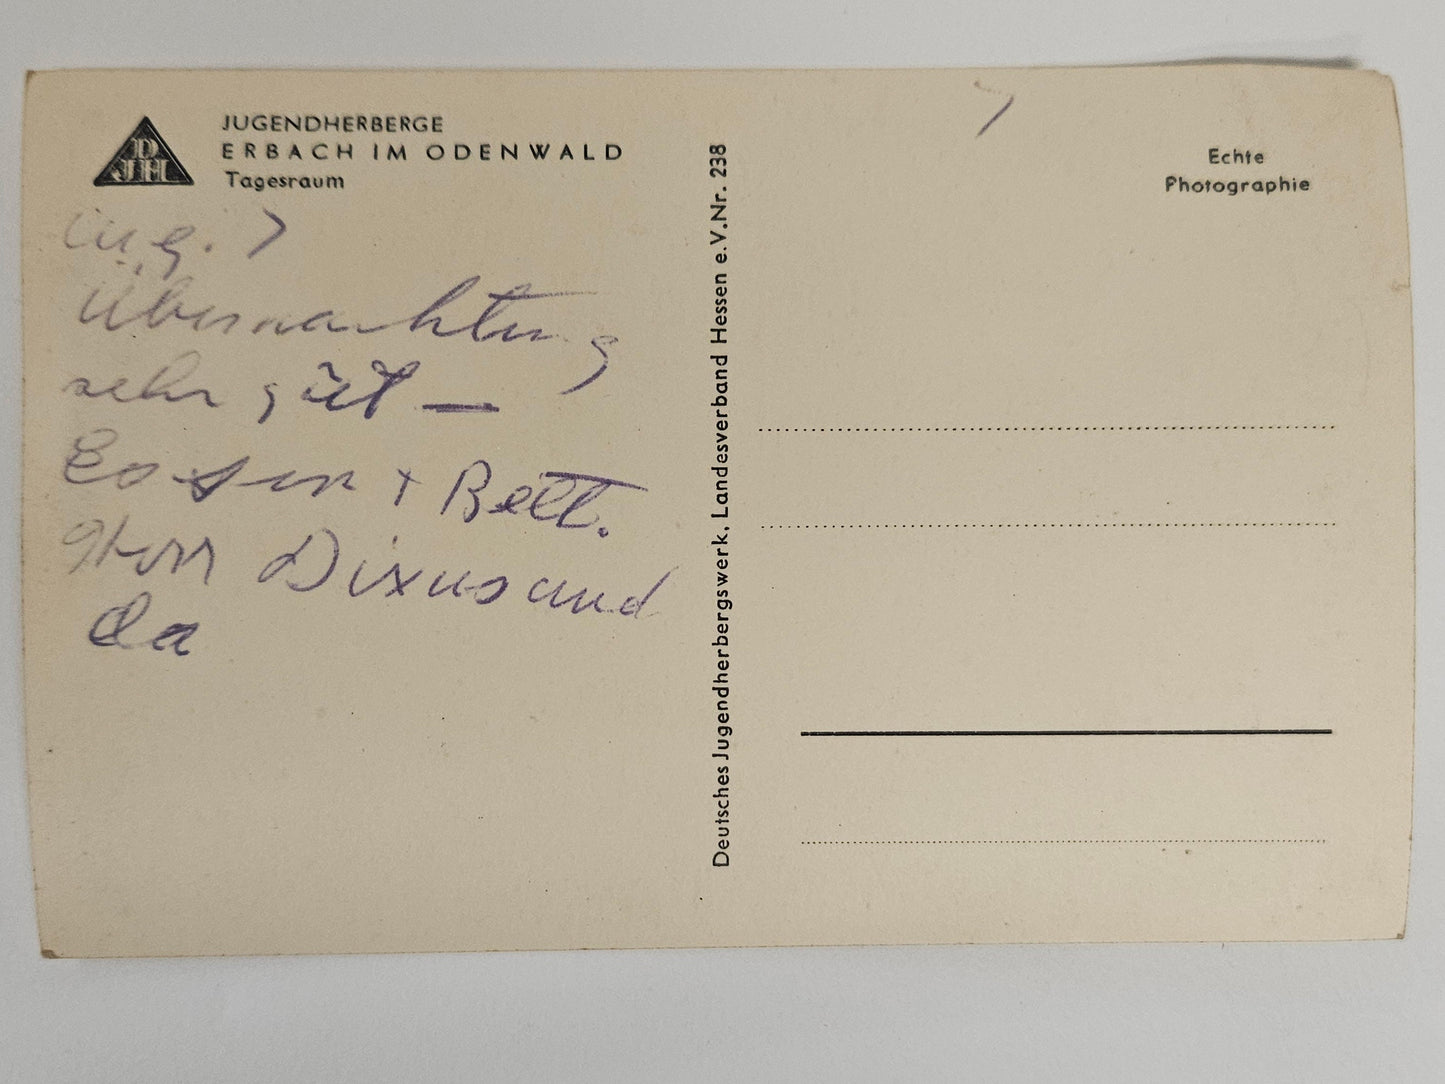 DJH
JUGENDHERBERGE
ERBACH IM ODENWALD
Tagesraum
Aug. 7
Übernachtung
sehr gut —
Essen + Bett.
Herr Dixus und
da
Deutsches Jugendherbergswerk, Landesverband Hessen e.V. Nr. 238
Echte
Photographie